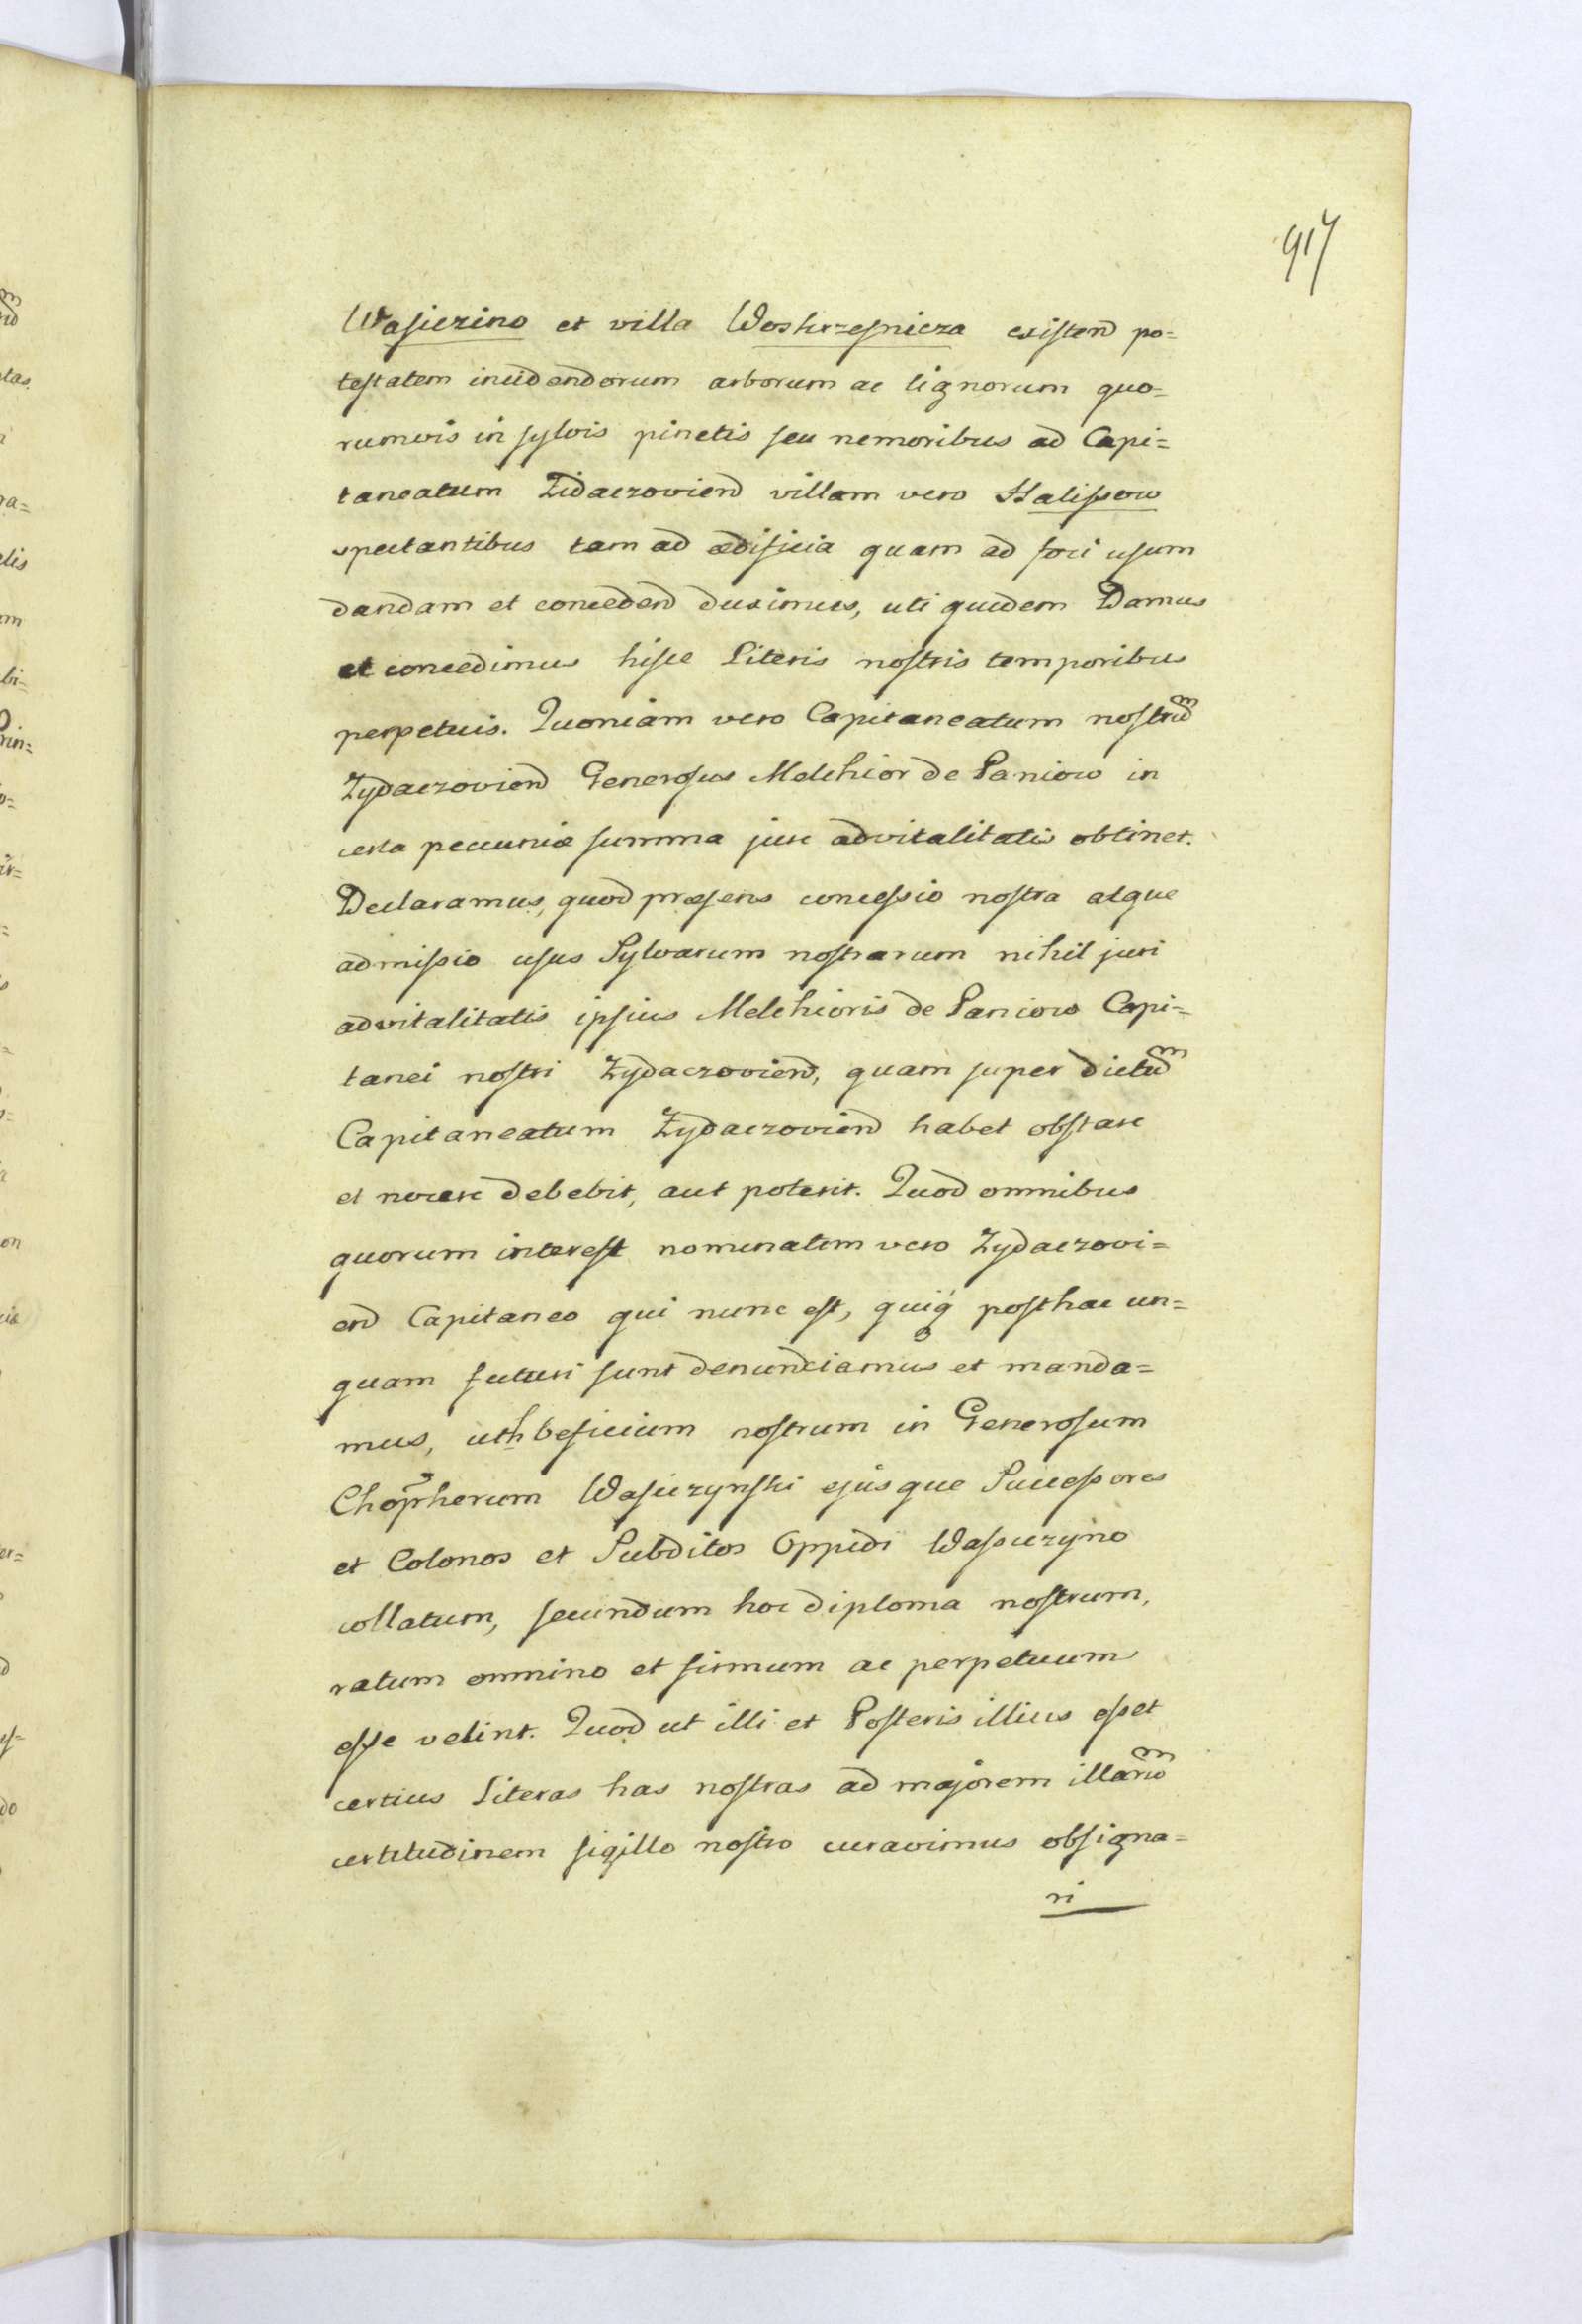 917
Wasiczino et villa Woskrzesnicza existend po=
testatem incidendorum arborum ac lignorum quo=
rumvis in sylvis pinetis seu nemoribus ad Capi=
taneatum Zidaczoviend villam vero Halissow
spectantibus tam ad ædificia quam ad foci usum
dandam et concedend duximus, uti quidem Damus
et concedimus hisce Literis nostris temporibus
perpetuis. Quoniam vero Capitaneatum nostrum
Zydaczoviend Generosus Melchior de Paniow in
certa pecuniæ summa jure advitalitatis obtinet.
Declaramus, quod præsens concessio nostra atque
admissio usus Sylvarum nostrarum nihil juri
advitalitatis ipsius Melchioris de Paniow Capi=
tanei nostri Zydaczoviend, quam super dictum
Capitaneatum Zydaczoviend habet obstare
et nocere debebit, aut poterit. Quod omnibus
quorum interest nominatim vero Zydaczovi=
end Capitaneo qui nunc est, quiq posthac un=
quam futuri sunt denunciamus et manda=
mus, uth beficium nostrum in Generosum
Chopherum Wasiczynski ejusque Successores
et Colonos et Subditos Oppidi Wasuczyno
collatum, secundum hoc diploma nostrum,
ratum omnino et firmum ac perpetuum
esse velint. Quod ut illi et Posteris illius esset
certius Literas has nostras ad majorem illarum
certitudinem sigillo nostro curavimus obsigna=
ri